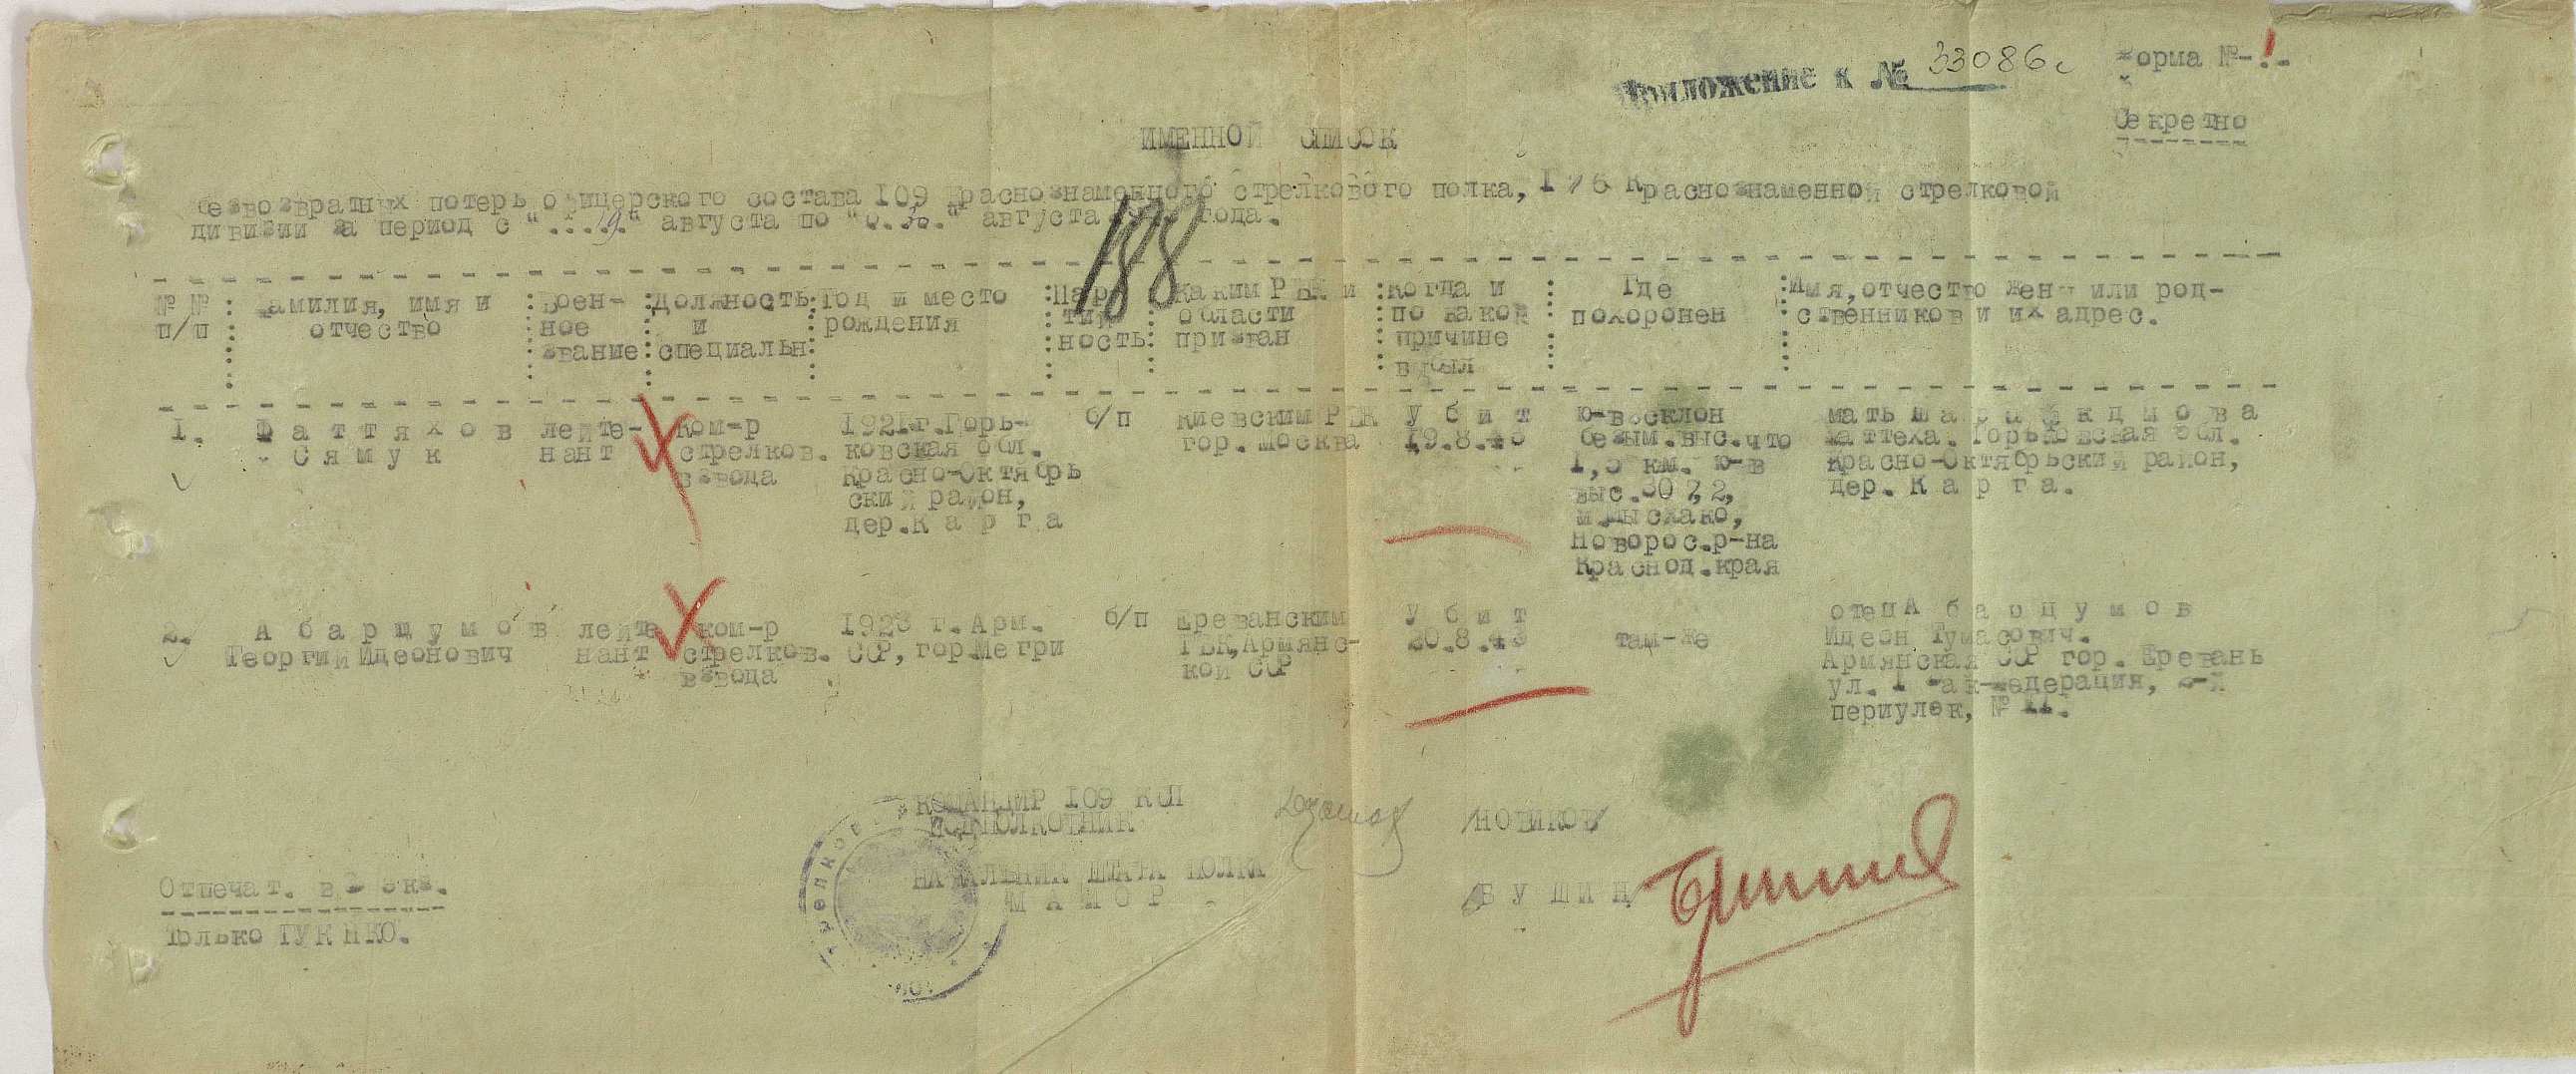 Приложение к № 33086с
Форма №-1.
Секретно
ИМЕННОЙ СПИСОК
безвозвратных потерь офицерского состава 109 Краснознаменного стрелкового полка, 176 Краснознаменной стрелковой
дивизии за период с "....19." августа по августа года.
188
№№ п/п
Фамилия, имя и отчество
Воен-
ное
звание
Должность
и
специальн
Год и место
рождения
Пар
тий
ность
Каким РВК и
области
призван
Когда и
по какой
причине
выбыл
Где
похоронен
Имя, отчество жены или род-
ственников и их адрес.
1.
Фаттяхов
Сямук
лейте-
нант
ком-р
стрелков.
взвода
1921г. Горь-
ковская обл.
Красно-Октябрь
ский район,
дер. Карга
б/п
Киевским РВК
гор. Москва
Убит
19.8.43
Ю-В склон
безым.выс.что
1,5 км. Ю-В
выс. 307,2,
м.Мысхако,
Новорос.р-на
Краснод.края
мать
Фаттеха. Горьковская обл.
Красно-Октябрьский район,
дер. Карга.
2.
Абарцумов
Георгий Идеонович
лейте
нант
ком-р
стрелков.
взвода
1923 г. Арм.
ССР, гор.Мегри
б/п
Ереванским
ГВК, Армянс-
кой ССР
Убит
20.8.43
там-же
отец Абарцумов
Идеон Тумасович.
Армянская ССР гор. Еревань
ул.
периулек, № 11.
КОМАНДИР 109 КСП
ПОДПОЛКОВНИК
/НОВИКОВ/
НАЧАЛЬНИК ШТАБА ПОЛКА
МАЙОР
/БУШИН/
Отпечат. в 2 экз.
Только ГУК НКО.